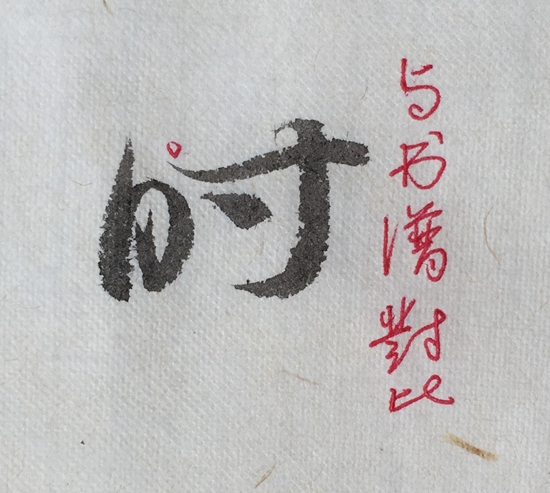 时
与书谱對比